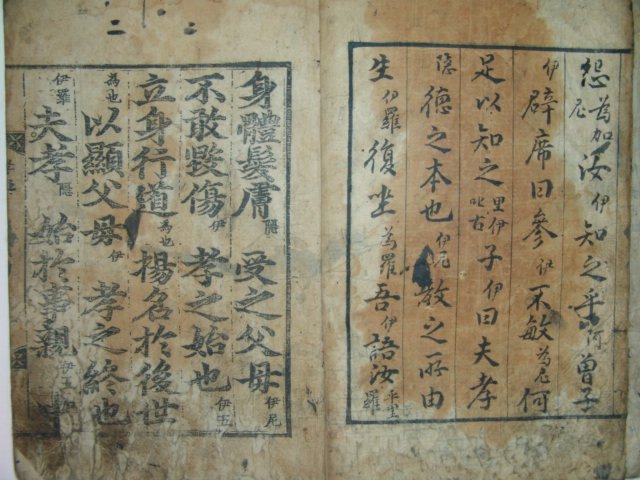 怨為加尼汝伊知之乎阿曾子
伊辟席曰參伊不敏為尼何
足以知之里伊叱古子伊曰夫孝
隱德之本也伊尼敎之所由
生伊羅復坐為羅吾伊語汝乎里羅
身體髮膚隱受之父母伊尼
不敢毀傷伊孝之始也伊五
立身行道為也揚名於後世
為也以顯父母伊孝之終也
伊羅夫孝隱始於事親伊五中